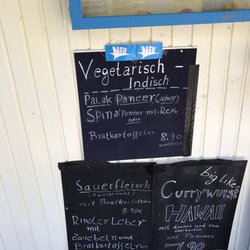 NEU NEU
Vegetarisch -
Indisch
Palak Paneer
Spinat Paneer mit Reis
oder
Bratkartoffeln 8.90
Sauerfleisch
mit Bratkartoffeln
9.90€
Rinderleber
mit
Zwiebeln und
Bratkartoffeln
big like
Currywurst
HAWAII
mit Ananas und
und Pommes